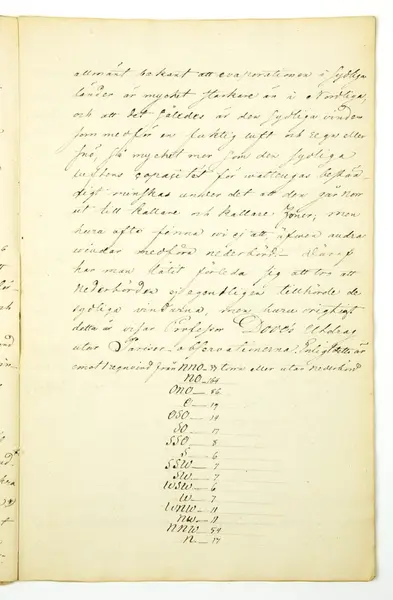 allmänt bekant att evaporationen i sydliga
länder är mycket starkare än i nordliga,
och att det således är den sydliga vinden
som medför en fuktig luft och regn eller
snö, så mycket mer som den sydliga
luftens capacitet för wattengas beständigt
minskas under det att den går norr
ut till kallare och kallare Zoner; men
huru ofta finna wi ej att äfwen andra
windar medföra nederbörd. Däraf
har man låtit förleda sig att tro att
nederbörden ej egentligen tillhörde de
sydliga windarna, men huru origtigt
detta är visar Professor Doves Utdrag
utur Pariser observationerna. Enligt detta är
emot 1 regnvind från NNO 38 utan nederbörd
NO - 64
ONO - 86
O - 19
OSO - 14
SO - 17
SSO - 8
S - 6
SSW - 7
SW - 7
WSW - 6
W - 7
WNW - 11
NW - 11
NNW - 54
N - 17